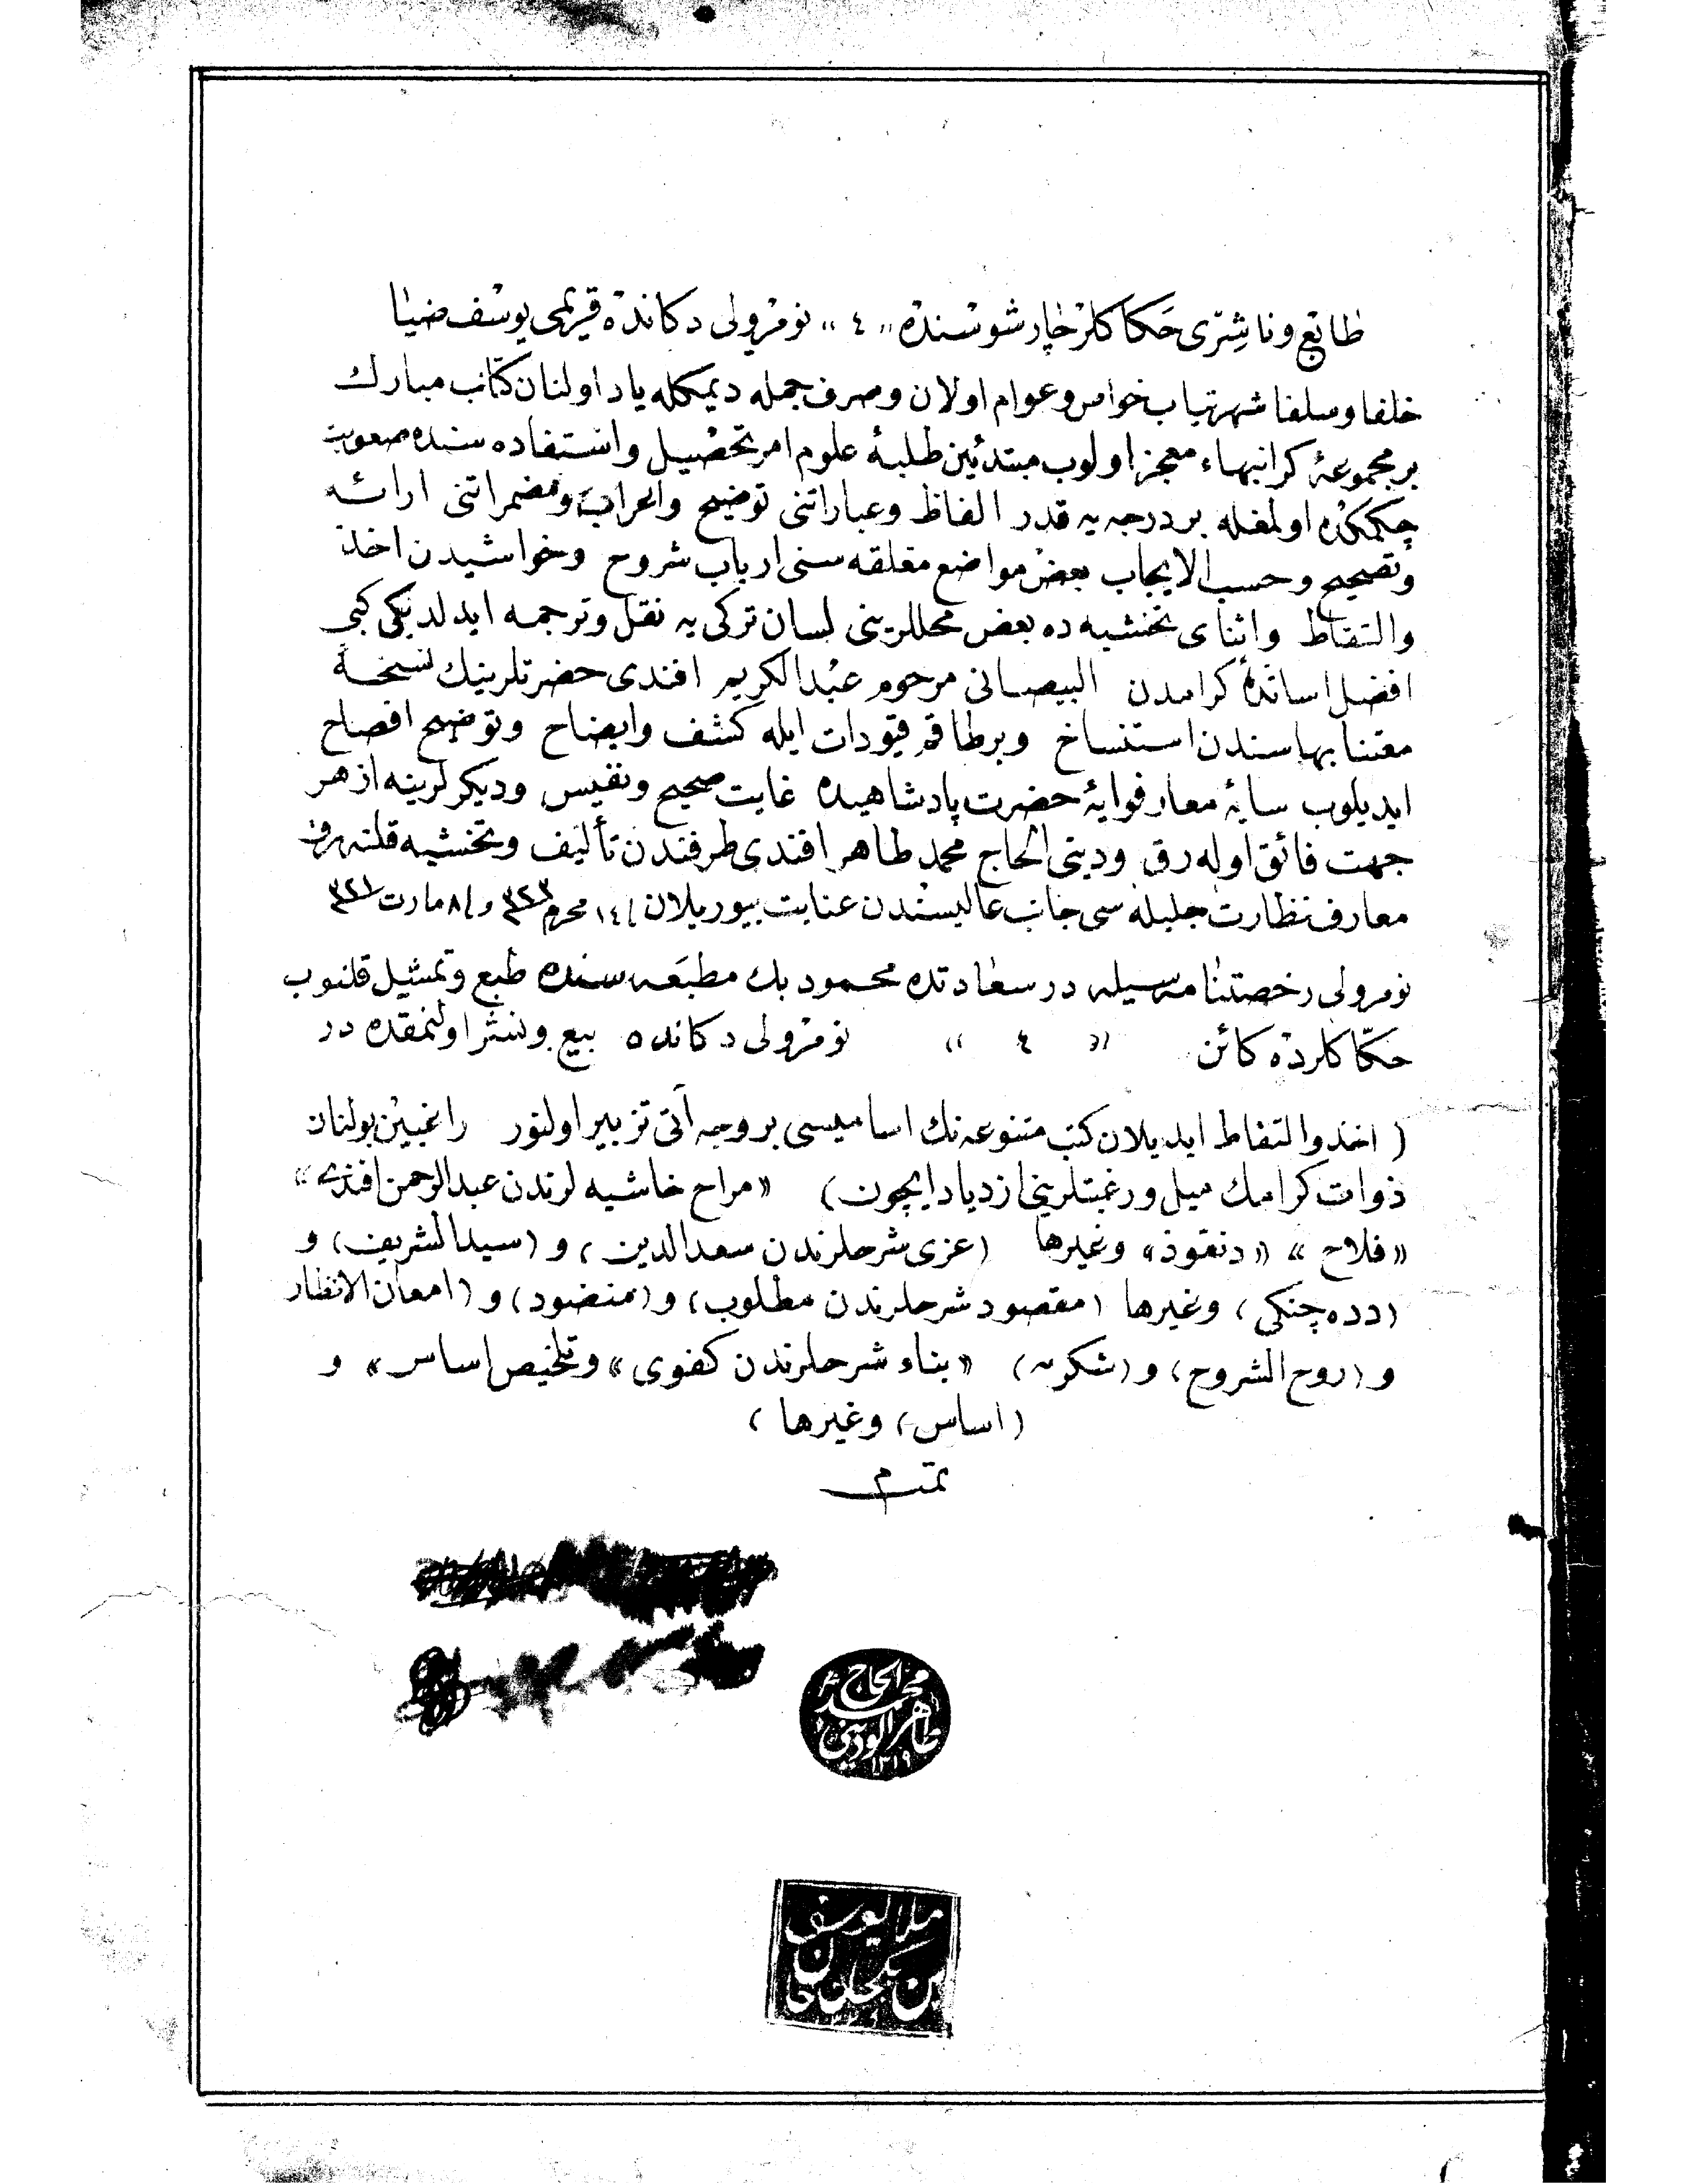 طابع وناشرى حكاكلر چارشوسنده «٤» نومرولى دكانده قريمى يوسف ضيا
خلفا وسلفا شهرتياب خواص وعوام اولان وصرف جمله ديمكله ياد اولنان كتاب مبارك
بر مجموعۀ كرانبهاء معجز اولوب مبتدئين طلبۀ علوم امر تحصيل واستفاده سنده صعوبت
چكمكده اولمغله بر درجه يه قدر الفاظ وعباراتنى توضيح واعراب ومضمراتنى ارائه
وتصحيح وحسب الايجاب بعض مواضع مغلقه سنى ارباب شروح وحواشيدن اخذ
والتقاط واثناى تحشيه ده بعض محللرينى لسان تركى يه نقل وترجمه ايدلديكى كبى
افضل اساتذۀ كرامدن البيصانى مرحوم عبدالكريم افندى حضرتلرينك نسخۀ
مقتنا بهاسندن استنساخ وبرطاقم قيودات ايله كشف وايضاح وتوضيح افصاح
ايديلوب سايۀ معارفوايۀ حضرت پادشاهيده غايت صحيح ونفيس وديكرلرينه از هر
جهت فائق اوله رق ودينى الحاج محمد طاهر افندى طرفندن تأليف وتحشيه قلنه رق
معارف نظارت جليله سى جانب عاليسندن عنايت بيوريلان ١٤ محرم ٣٢٣ و ٨ مارت ٣٢١
نومرولى رخصتنامه سيله درسعادتده محمود بك مطبعه سنده طبع وتمثيل قلنوب
حكاكلرده كائن « ٤ » نومرولى دكانده بيع ونشر اولنمقده در
( اخذ والتقاط ايديلان كتب متنوعه نك اساميسى بر وجه آتى تزبير اولنور راغبين بولنان
ذوات كرامك ميل ورغبتلرينى ازدياد ايچون) «مراح حاشيه لرندن عبدالرحمن افندى»
«فلاح» «دنقوز» وغيرها (عزى شرحلرندن سعدالدين) و (سيد الشريف) و
(دده چنكى) وغيرها (مقصود شرحلرندن مطلوب) و (منضود) و (امعان الانظار
و (روح الشروح) و (شكريه) «بناء شرحلرندن كفوى» وتلخيص اساس» و
(اساس) وغيرها )
تمت م
الحاج محمد طاهر الودينى ١٣١٩
ملا يوسف بن